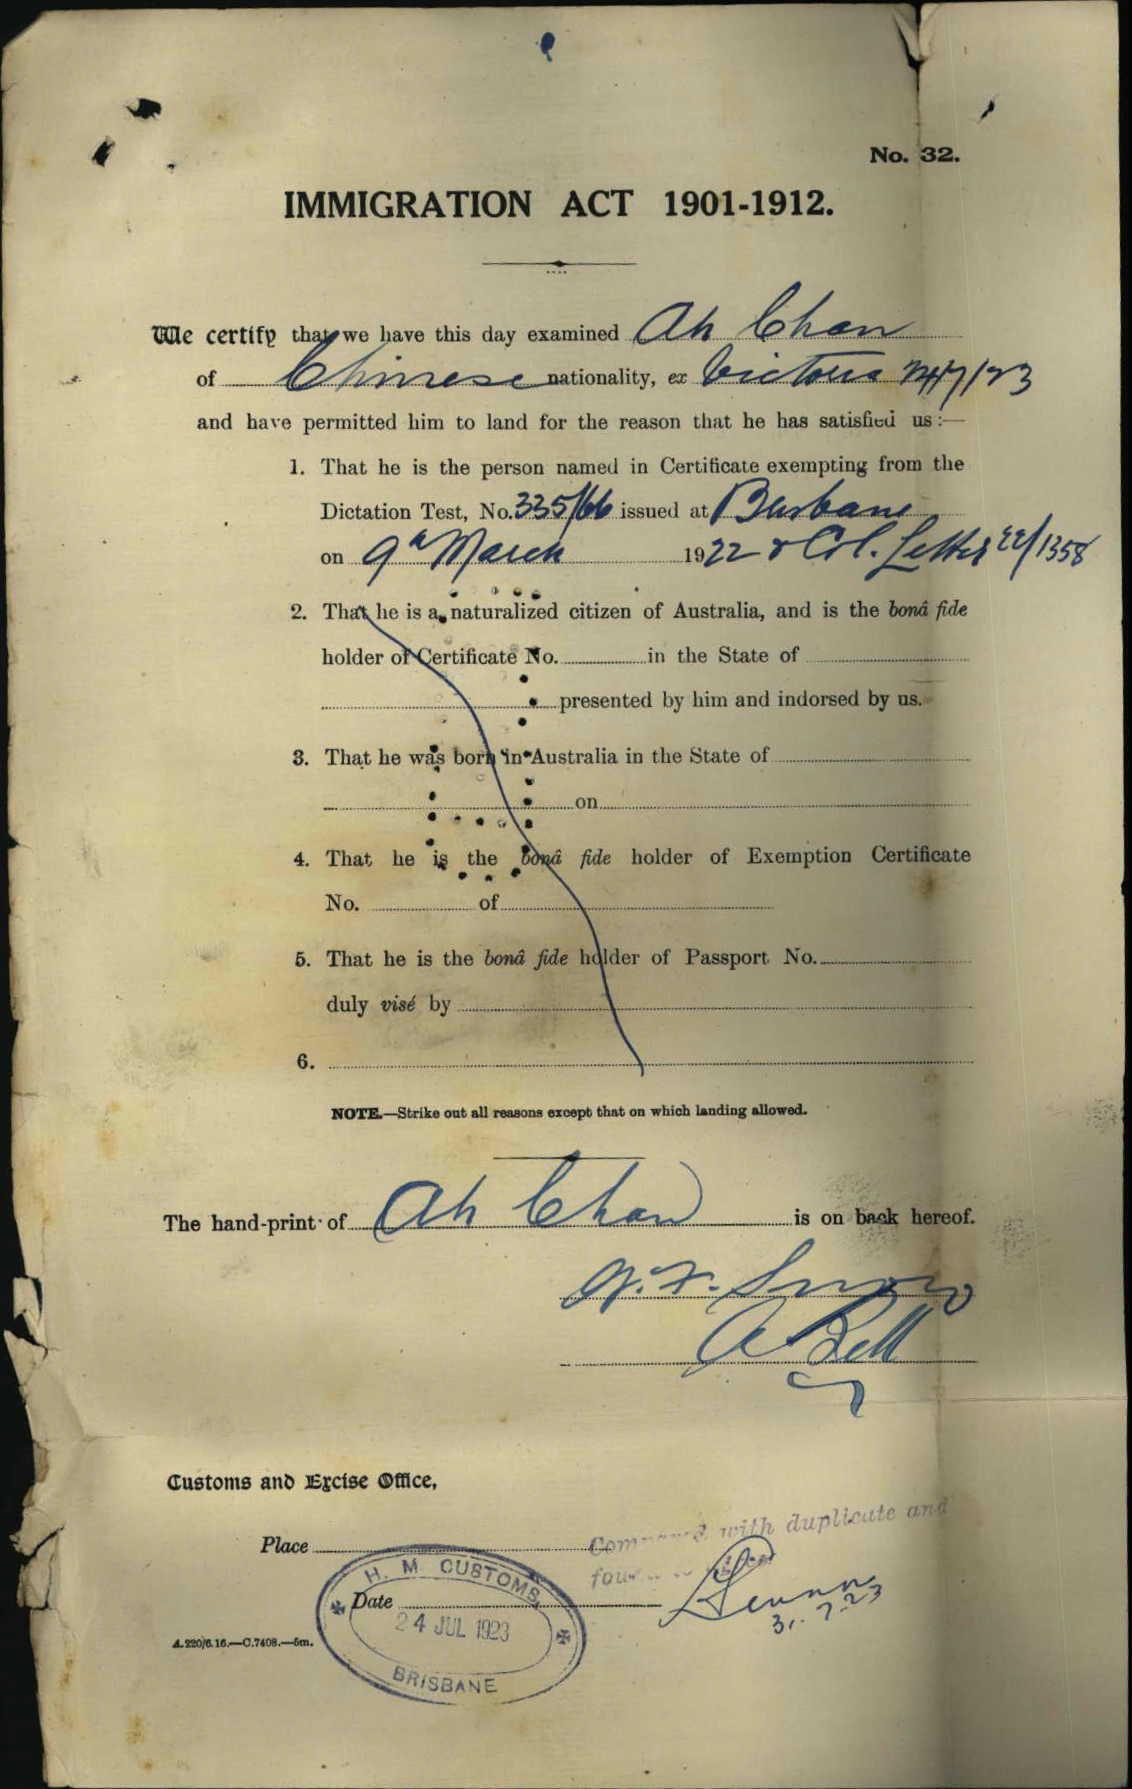 No. 32.
IMMIGRATION ACT 1901-1912.
We certify that we have this day examined Ah Chan
of Chinese nationality, ex Victoria 24/7/23
and have permitted him to land for the reason that he has satisfied us:—
1. That he is the person named in Certificate exempting from the
Dictation Test, No. 335/66 issued at Brisbane
on 9th March 1922 & Col. Letter 22/1358
2. That he is a naturalized citizen of Australia, and is the bonâ fide
holder of Certificate No. in the State of
presented by him and indorsed by us.
3. That he was born in Australia in the State of
on
4. That he is the bonâ fide holder of Exemption Certificate
No. of
5. That he is the bonâ fide holder of Passport No.
duly visé by
6.
NOTE.—Strike out all reasons except that on which landing allowed.
The hand-print of Ah Chan is on back hereof.
Snow
A Bell
Customs and Excise Office,
Place
Compared with duplicate and
Date
H. M. CUSTOMS
24 JUL 1923
BRISBANE
31.7.23
A.220/6.16.—C.7408.—5m.